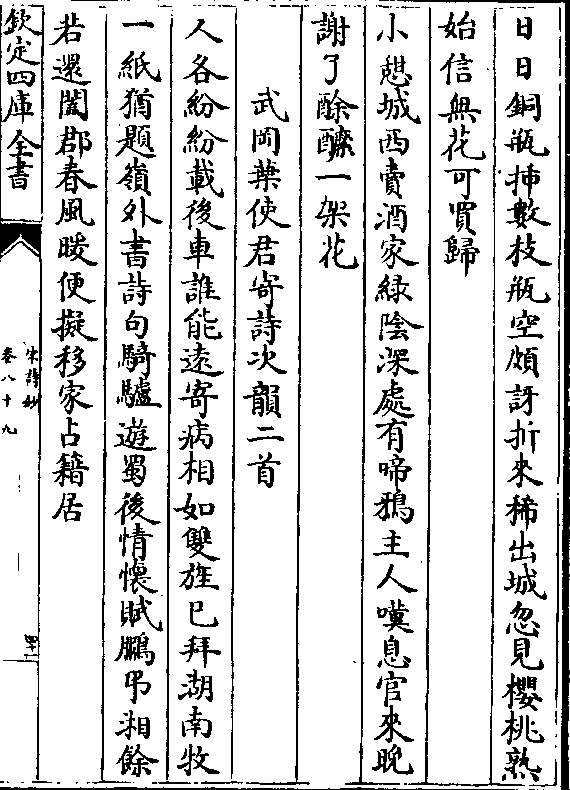 日日銅瓶揷數枝瓶空頗訝折來稀出城忽見櫻桃熟
始信無花可買歸
小憇城西賣酒家綠陰深處有啼鵶主人嘆息官來晩
謝了酴醾一架花
武岡葉使君寄詩次韻二首
人各紛紛載後車誰能遠寄病相如雙旌已拜湖南牧
一紙猶題嶺外書詩句騎驢遊蜀後情懷賦鵩弔湘餘
若還闔郡春風暖便擬移家占籍居
欽定四庫全書
宋詩鈔
卷八十九